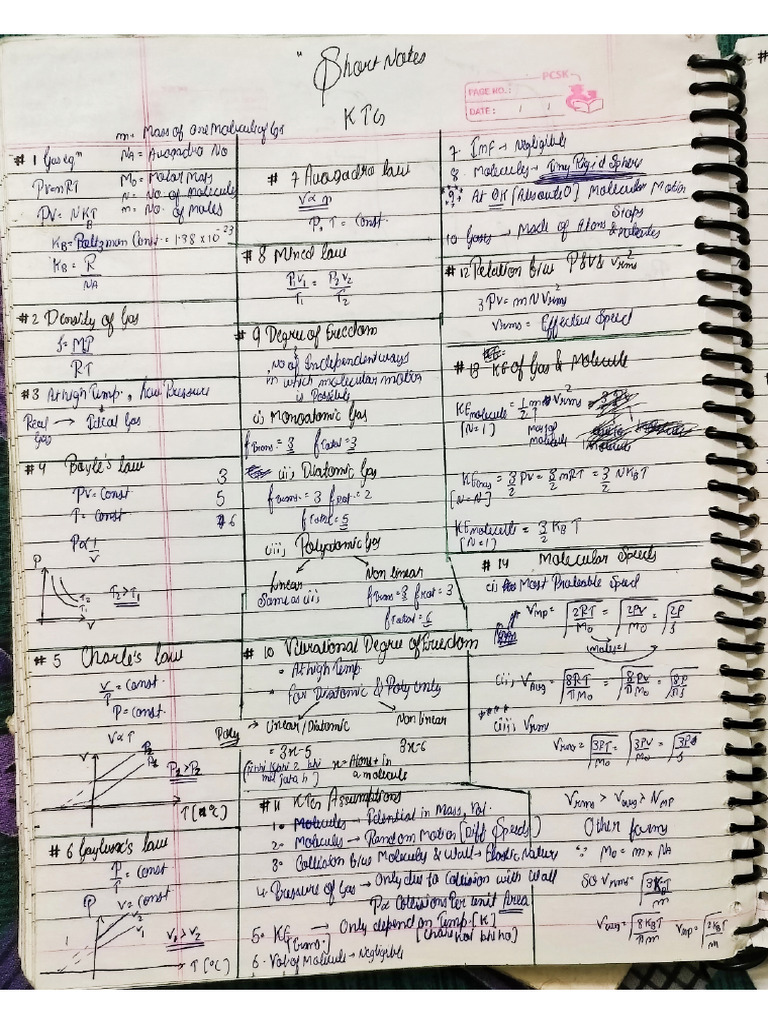 "Short Notes
KTG
PCSK
PAGE NO.:
DATE: / /
m = Mass of one Molecule of Gas
# 1 Gas eqn
NA = Avagadro No
PV = nRT
M0 = Molar Mass
N = No. of Molecule
PV = NKBT
n = No. of Moles
KB = Boltzman Const = 1.38 x 10^-23
KB = R/NA
# 2 Density of Gas
ρ = MP/RT
# 3 At high Temp, Low Pressure
Real Gas → Ideal Gas
# 4 Boyle's law
3
PV = Const
5
T = Const
6
P ∝ 1/V
P
T2 > T1
T2
T1
V
# 5 Charle's law
V/T = Const.
P = Const.
V ∝ T
V
P2
P1
P1 > P2
T (in °C)
# 6 Gaylussc's law
P/T = Const
V = Const
P
V2
V1
V1 > V2
T [°C]
# 7 Avagadro law
V ∝ n
P, T = Const.
# 8 Mixed law
P1V1/T1 = P2V2/T2
# 9 Degree of Freedom
No of Independent ways
in which molecular motion
is Possible
i) Monoatomic Gas
fTrans. = 3 fTotal = 3
ii) Diatomic Gas
fTrans = 3 fRot. = 2
fTotal = 5
iii) Polyatomic Gas
Linear
Non linear
Same as ii)
fTrans = 3 fRot = 3
fTotal = 6
# 10 Vibrational Degree of Freedom
• At high Temp.
• For Diatomic & Poly only
Poly → Linear/Diatomic
Non linear
= 3n-5
3n-6
n = Atoms in
a molecule
# 11 KTG Assumptions
1. Molecules → Identical in Mass, Vol.
2. Molecules → Random Motion (Diff Speeds)
3. Collision b/w Molecules & Wall → Elastic Nature
4. Pressure of Gas → Only due to Collision with Wall
P ∝ Collisions Per unit Area
5. KE (Trans.) → Only depend on Temp. [K]
[Chahe koi bhi ho]
6. Vol of Molecule → Negligible
7. IMF → Negligible
8. Molecules → Tiny Rigid Sphere
9. At 0K [Absolute 0] Molecular Motion
Stops
10 Gases → Made of Atoms & Molecules
# 12 Relation b/w P & V & Vrms^2
3PV = mNVrms^2
Vrms = Effective Speed
# 13 KE of Gas & Molecule
KEmolecule = 1/2 m Vrms^2
[N=1]
Mass of
molecule
KEGas = 3/2 PV = 3/2 nRT = 3/2 NKBT
[N=N]
KEmolecule = 3/2 KBT
[N=1]
# 14 Molecular Speeds
i) Most Probable Speed
VMP = √(2RT/M0) = √(2PV/M0) = √(2P/ρ)
mole=1
ii) VAvg = √(8RT/πM0) = √(8PV/πM0) = √(8P/πρ)
****
iii) Vrms
Vrms = √(3RT/M0) = √(3PV/M0) = √(3P/ρ)
Vrms > Vavg > VMP
Other forms
∵ M0 = m x NA
SO Vrms = √(3KBT/m)
Vavg = √(8KBT/πm) Vmp = √(2KBT/m)